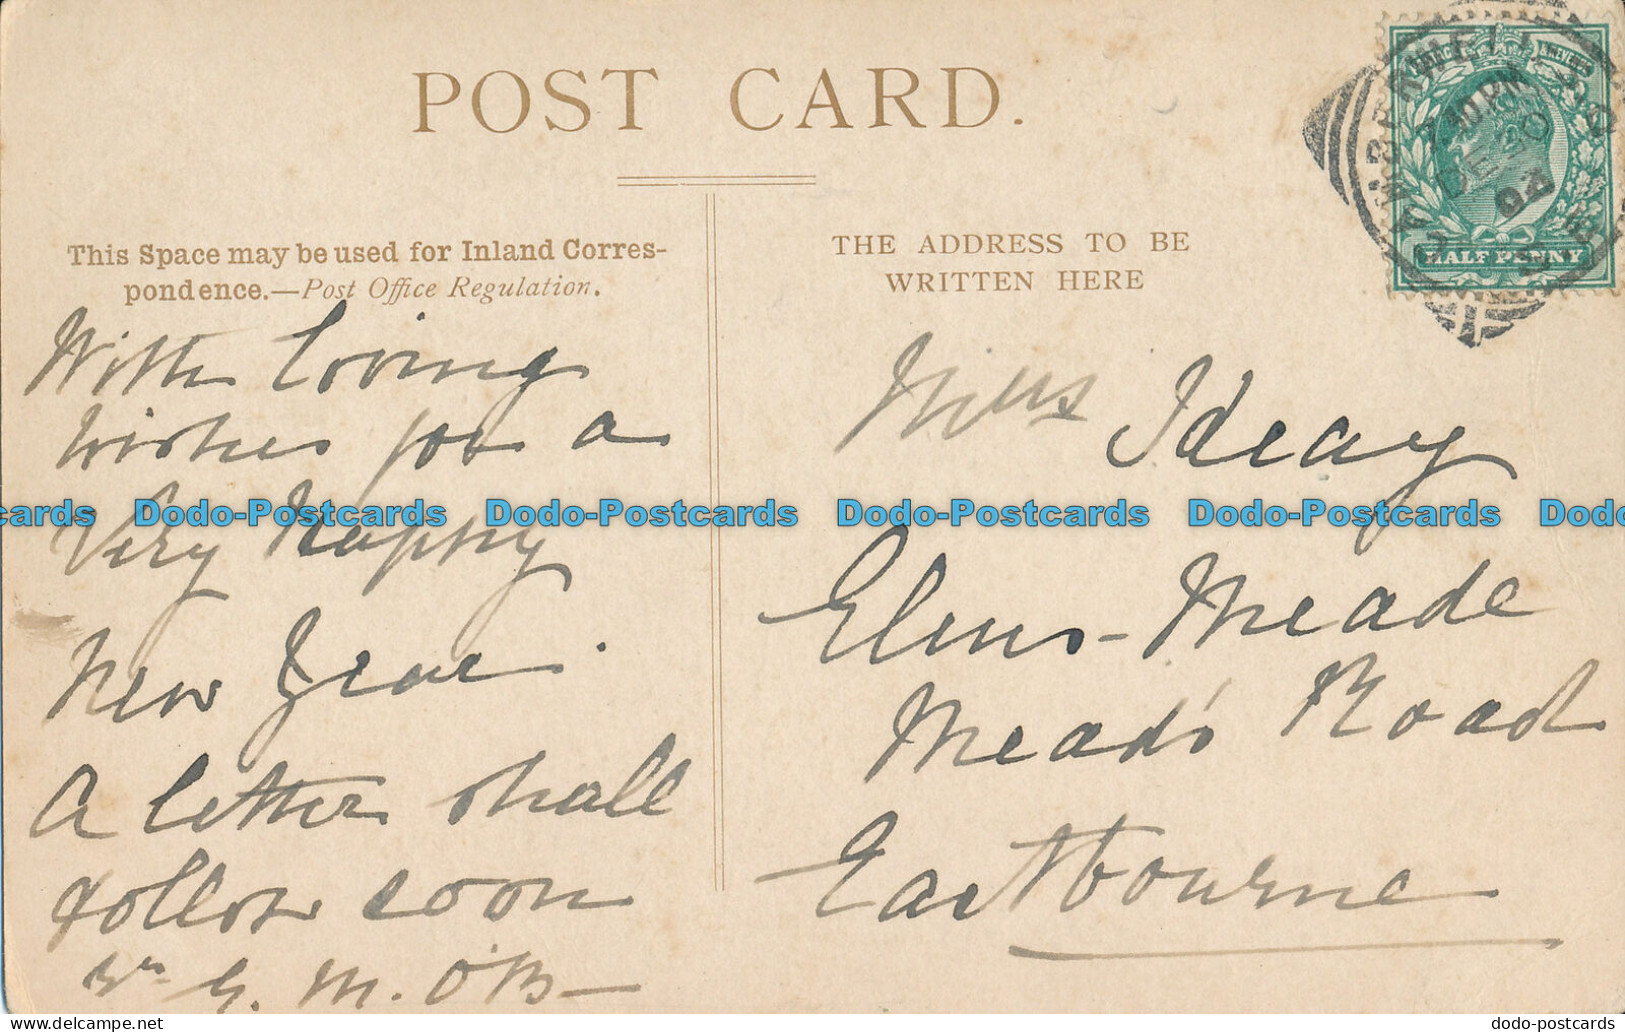 POST CARD.
This Space may be used for Inland Corres-
pondence.—Post Office Regulation.
With loving
wishes for a
Very Happy
New Year.
A letter shall
follow soon
G. M. O'B—
THE ADDRESS TO BE
WRITTEN HERE
Miss Ideay
Elms-Meade
Meads Road
Eastbourne
HALF PENNY
DE 30
04
cards Dodo-Postcards Dodo-Postcards Dodo-Postcards Dodo-Postcards Dodo
dodo-postcards
delcampe.net